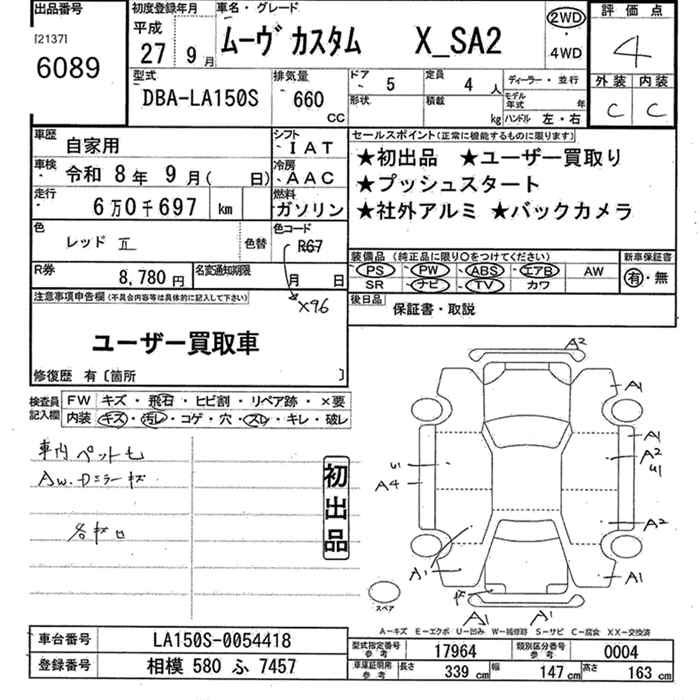 出品番号
[2137]
6089
初度登録年月
平成
27 9月
車名・グレード
ムーヴ カスタム X_SA2
2WD
・
4WD
評価点
4
外装 内装
C C
型式
DBA-LA150S
排気量
660
CC
ドア 5
形状
定員 4 人
積載 kg
ディーラー・並行
モデル年式 年
ハンドル 左・右
車歴 自家用
シフト ・IAT
車検 令和 8年 9月( 日)
冷房 ・AAC
走行 6万0千697 km
燃料 ガソリン
色 レッドⅡ
色替
色コード R67
X96
R券 8,780円
名変通知期限 月 日
セールスポイント(正常に機能するものに限ります)
★初出品 ★ユーザー買取り
★プッシュスタート
★社外アルミ ★バックカメラ
装備品(純正品に限り〇をつけてください)
新車保証書
PS ・PW ・ABS ・エアB AW
SR ナビ・TV カワ
有・無
後日品
保証書・取説
注意事項申告欄(不具合内容等は具体的に記入して下さい)
ユーザー買取車
修復歴 有〔箇所 〕
検査員記入欄
FW キズ・飛石・ヒビ割・リペア跡・×要
内装 キズ・汚レ・コゲ・穴・スレ・キレ・破レ
車内ペット毛
AW.Dミラーキズ
各キロ
初出品
A2
A1
A1
A2
U1
U1
A4
A2
A1
A1
A1
A1
スペア
A－キズ E－エクボ U－凹み W－補修跡 S－サビ C－腐食 XX－交換済
車台番号 LA150S-0054418
登録番号 相模 580 ふ 7457
型式指定番号参考 17964
類別区分番号参考 0004
車庫証明用参考 長さ 339 cm 幅 147 cm 高さ 163 cm